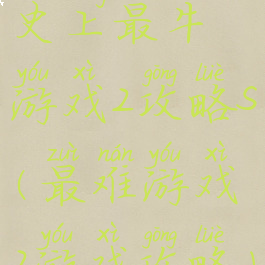 史上最牛
yóu xì gōng lüè
游戏2攻略5
zuì nán yóu xì
(最难游戏
yóu xì gōng lüè
游戏攻略)